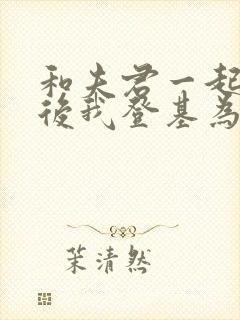 和夫君一起
後我登基為
茉清然